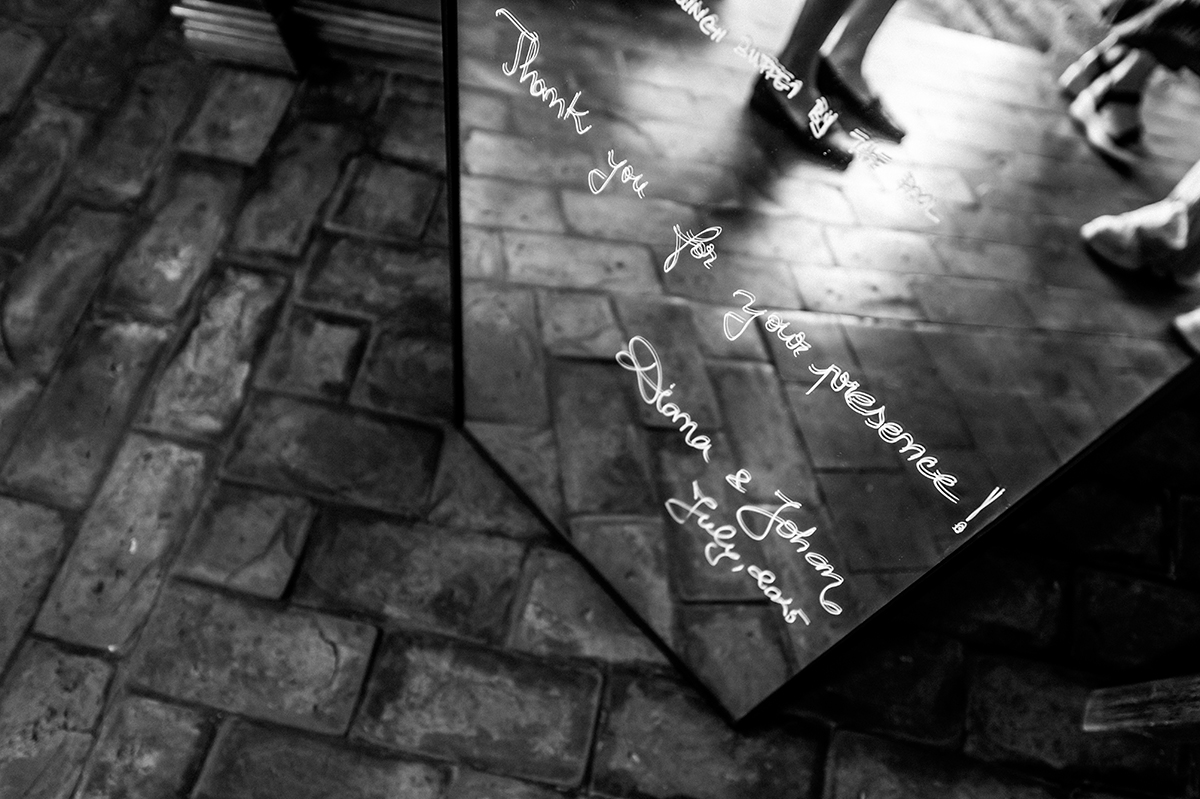 BUFFET BY THE POOL
Thank you for your presence!
Diana & Johan
July, 2025